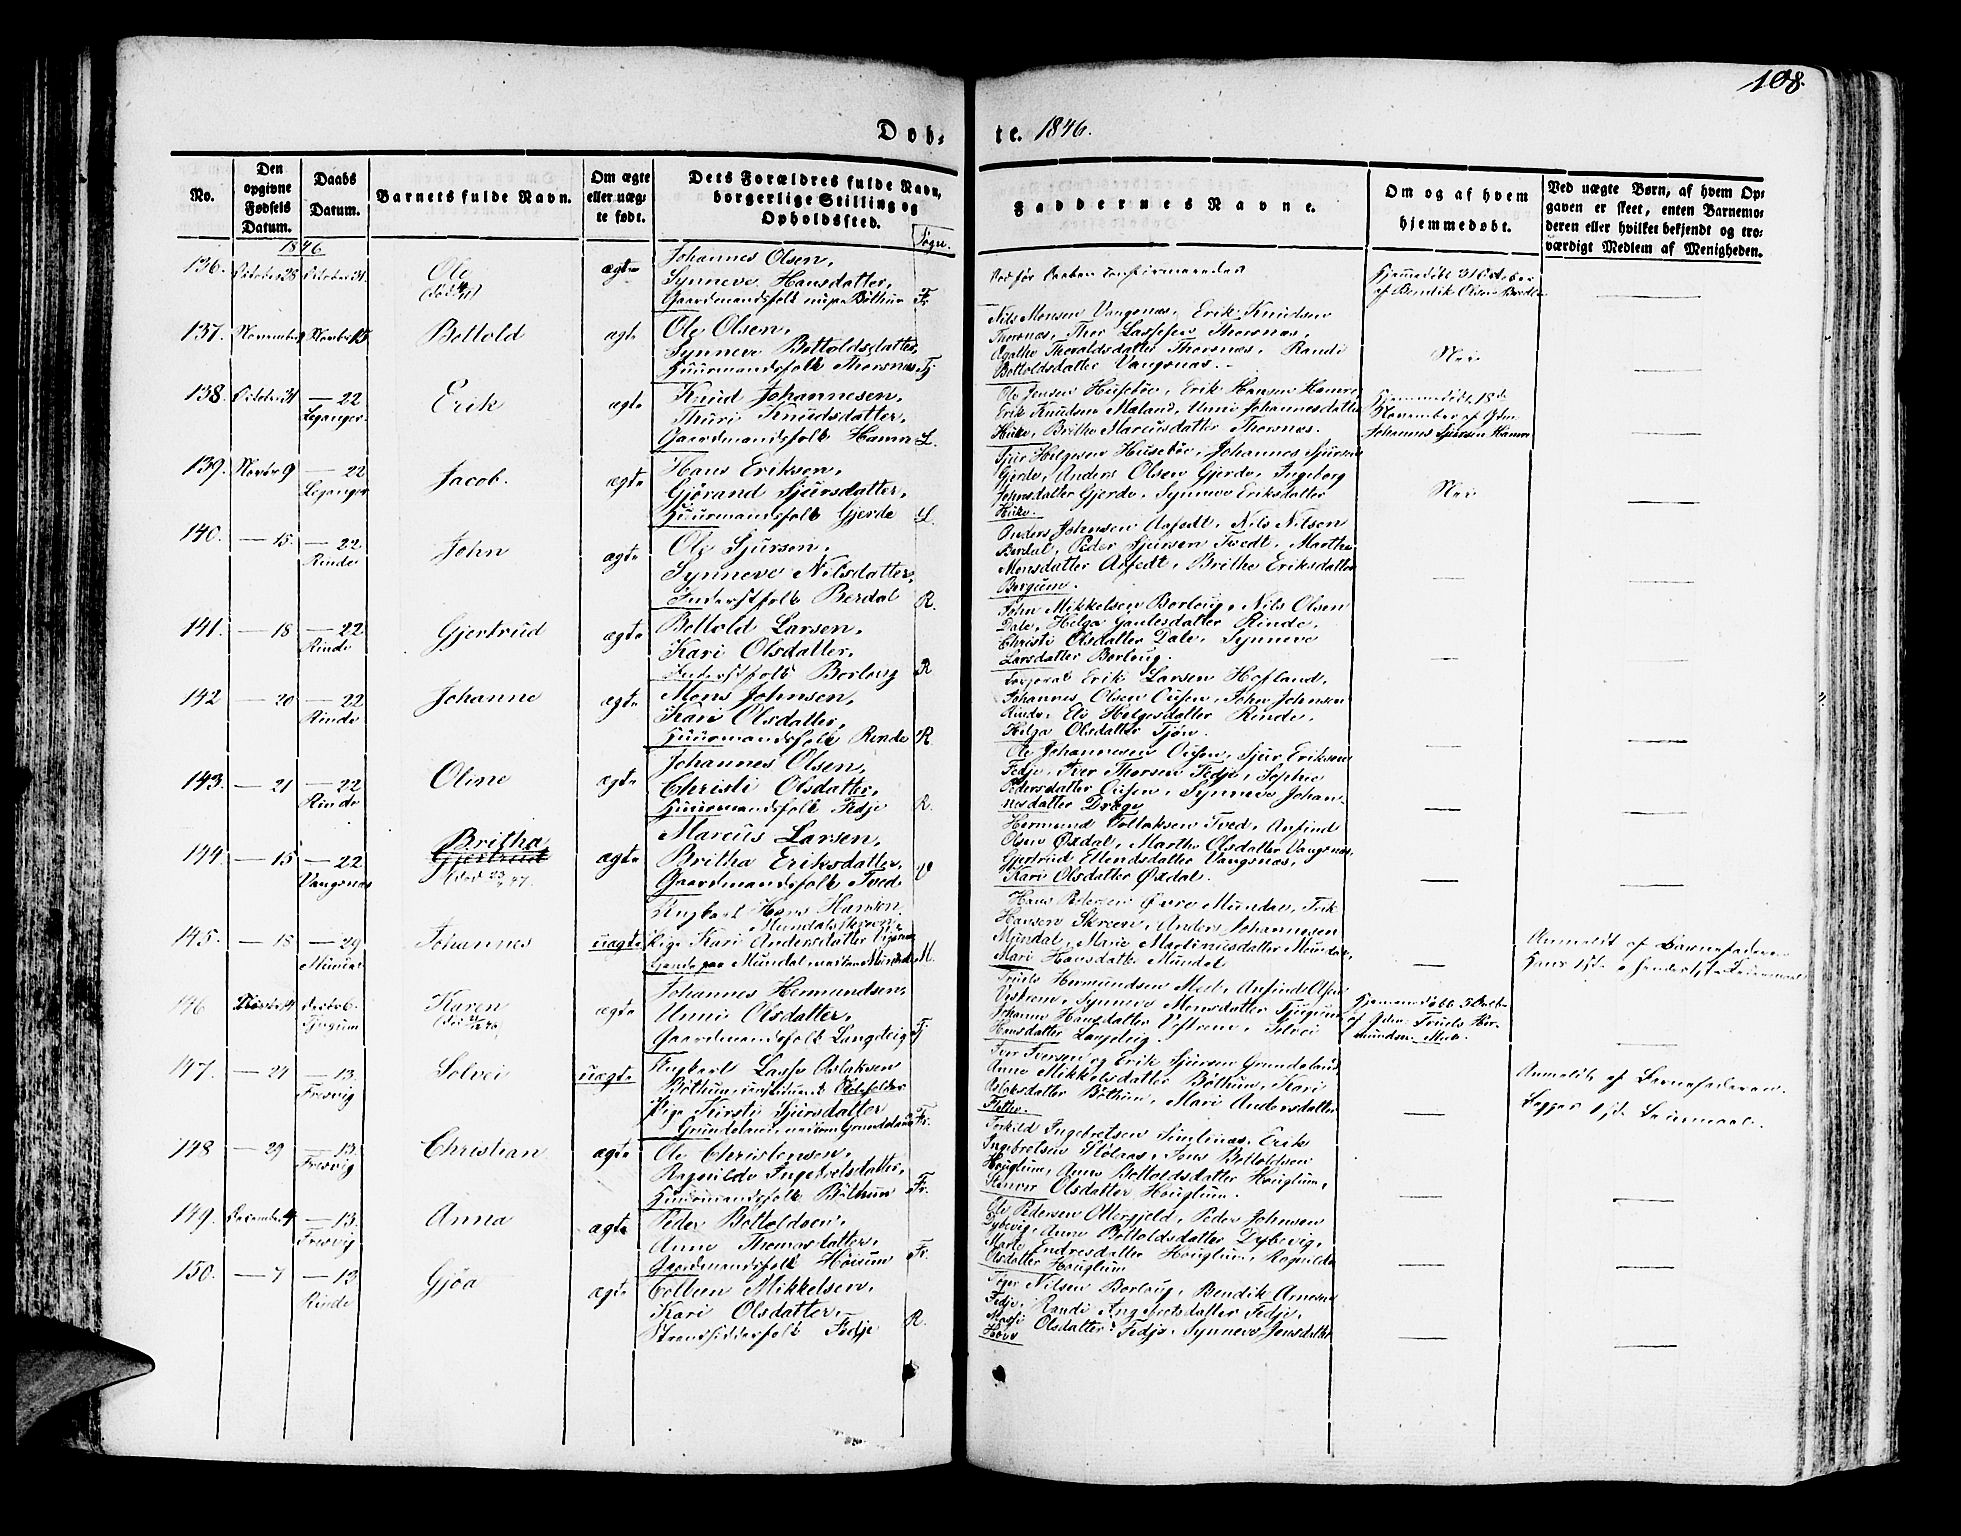 108.
Døb-
te. 1846.
No.
Den opgivne Fødsels Datum.
Daabs Datum.
Barnets fulde Navn.
Om ægte eller uægte født.
Dets Forældres fulde Navn, borgerlige Stilling og Opholdssted.
Sogn.
Faddernes Navne.
Om og af hvem hjemmedøbt.
Ved uægte Børn, af hvem Opgaven er skeet, enten Barnemoderen eller hvilket bekjendt og troværdigt Medlem af Menigheden.
1846
136. October 28 October 31. Ole ægte Johannes Olsen,
Synneve Hansdatter,
Gaardmandsfolk Bøthun Fr.
Hjemmedøbt 31 October
af Bendik Olsen
137. November 9 Novbr 15 Bottold ægte Ole Olsen,
Synneve Bottoldsdatter,
Huusmandsfolk Thorsnæs Tj
Nils Monsen Vangsnæs, Erik Knudsen
Thorsnæs, Thor Lassesen Thorsnæs,
Agathe Thoraldsdatter Thorsnæs, Randi
Bottoldsdatter Vangsnæs.
Nei
138. October 31 — 22 Leganger Erik ægte Knud Johannesen,
Thuri Knudsdatter,
Gaardmandsfolk Hamre L.
Ole Jensen Husebøe, Erik Hansen Hamre,
Erik Knudsen Mæland, Unni Johannesdatter
Brithe Marcusdatter Thorsnæs.
Hjemmedøbt 18de
November af Gdm
Johannes Sjursen Hamre
139. Novbr 9 — 22 Leganger Jacob. ægte Hans Eriksen,
Gjørand Sjursdatter,
Huusmandsfolk Gjerde L.
Sjur Helgesen Husebøe, Johannes Sjursen
Gjerde, Anders Olsen Gjerde, Ingeborg
Johnsdatter Gjerde, Synneve Eriksdatter
Nei
140. — 15. — 22 Rinde John ægte Ole Sjursen,
Synneve Nilsdatter,
Inderstfolk Berdal R.
Anders Johnsen Aafedt, Nils Nilsen
Berdal, Peder Sjursen Tvedt, Marthe
Monsdatter Aafedt, Brithe Eriksdatter
Bergum.
141. — 18 — 22 Rinde Gjertrud ægte Bottold Larsen,
Kari Olsdatter,
Inderstfolk Borlaug R
John Mikkelsen Borlaug, Nils Olsen
Dale, Helga Gautesdatter Rinde,
Christi Olsdatter Dale, Synneve
Larsdatter Borlaug.
142 — 20 — 22 Rinde Johanne ægte Mons Johnsen,
Kari Olsdatter,
Huusmandsfolk Rinde R.
Corporal Erik Larsen Hofland,
Johannes Olsen John Johnsen
Rinde, Eli Helgesdatter Rinde,
Helga Olsdatter Tjøn.
143. — 21 — 22 Rinde Oline ægte Johannes Olsen,
Christi Olsdatter,
Huusmandsfolk Fedje R.
Ole Johannesen Sjur Eriksen
Fedje, Iver Thorsen Fedje, Sophie
Pedersdatter Synneve Johan-
nesdatter Drage
144 — 15 — 22 Vangsnæs Britha Gjertrud ægte Marcus Larsen,
Britha Eriksdatter,
Gaardmandsfolk Tved V
Hermund Tollaksen Tved, Anfind
Olsen Øxdal, Marthe Olsdatter Vangsnæs,
Gjertrud Ellendsdatter Vangsnæs,
Kari Olsdatter Øxdal.
145. — 18 — 29 Mundal Johannes uægte Ungkarl Hans Hansen
Pige Kari Andersdatter
M.
Hans Pedersen Øvre Mundal, Erik
Hansen Skreen, Anders Johannesen
Mundal, Marie Martinusdatter Mundal,
Mari Hansdatter Mundal
Anmeldt af Barnefaderen
146 Karen ægte Johannes Hermundsen,
Unni Olsdatter,
Gaardmandsfolk Langdeig Tj
Truels Hermundsen Mæl, Anfind Olsen
Vestrem, Synneve Monsdatter
Johanne Hansdatter Vestrem, Solvei
Hansdatter
Hjemmedøbt
af Gdm. Truels Her-
mundsen Mæl.
147. — 24 — 13. Fresvig Solvei uægte Ungkarl Lasse Aslaksen
Bøthun,
Pige Kirsti Sjursdatter
Grundeland, Fr.
Iver Iversen og Erik Sjursen Grundeland
Anne Mikkelsdatter Bøthun, Kari
Aslaksdatter Bøthun, Mari Andersdatter
Anmeldt af Barnefaderen.
148 — 29 — 13. Fresvig Christian ægte Ole Christensen,
Ragnilde Ingebretsdatter,
Huusmandsfolk Bøthun Fr.
Torkild Ingebretsen Simlenæs, Erik
Ingebretsen Jens Bottoldsen
Houglum, Anne Bottoldsdatter Houglum,
Olsdatter Houglum.
149. December 4 — 13. Fresvig Anna ægte Peder Bottoldsen,
Anne Thomasdatter,
Gaardmandsfolk Høirum Fr.
Ole Pedersen Ottergjeld, Peder Johnsen
Dybevig, Anne Bottoldsdatter Dybevig,
Marte Endresdatter Houglum, Ragnilde
Olsdatter Houglum
150. — 7 — 13 Rinde Gjøa ægte Colbein Mikkelsen,
Kari Olsdatter,
Strandsidderfolk Fedje R.
Nilsen Borlaug, Bendik Arnesen
Fedje, Randi Ingebretsdatter Fedje,
Olsdatter Fedje, Synneve Jensdatter